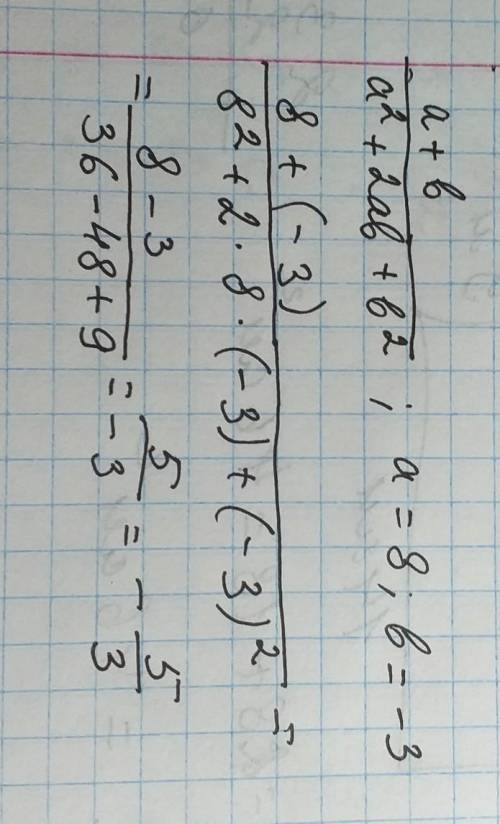 a + b
a² + 2ab + b² ; a = 8; b = -3
8 + (-3)
8² + 2 · 8 · (-3) + (-3)² =
= 8 - 3
36 - 48 + 9 = 5
-3 = - 5
3